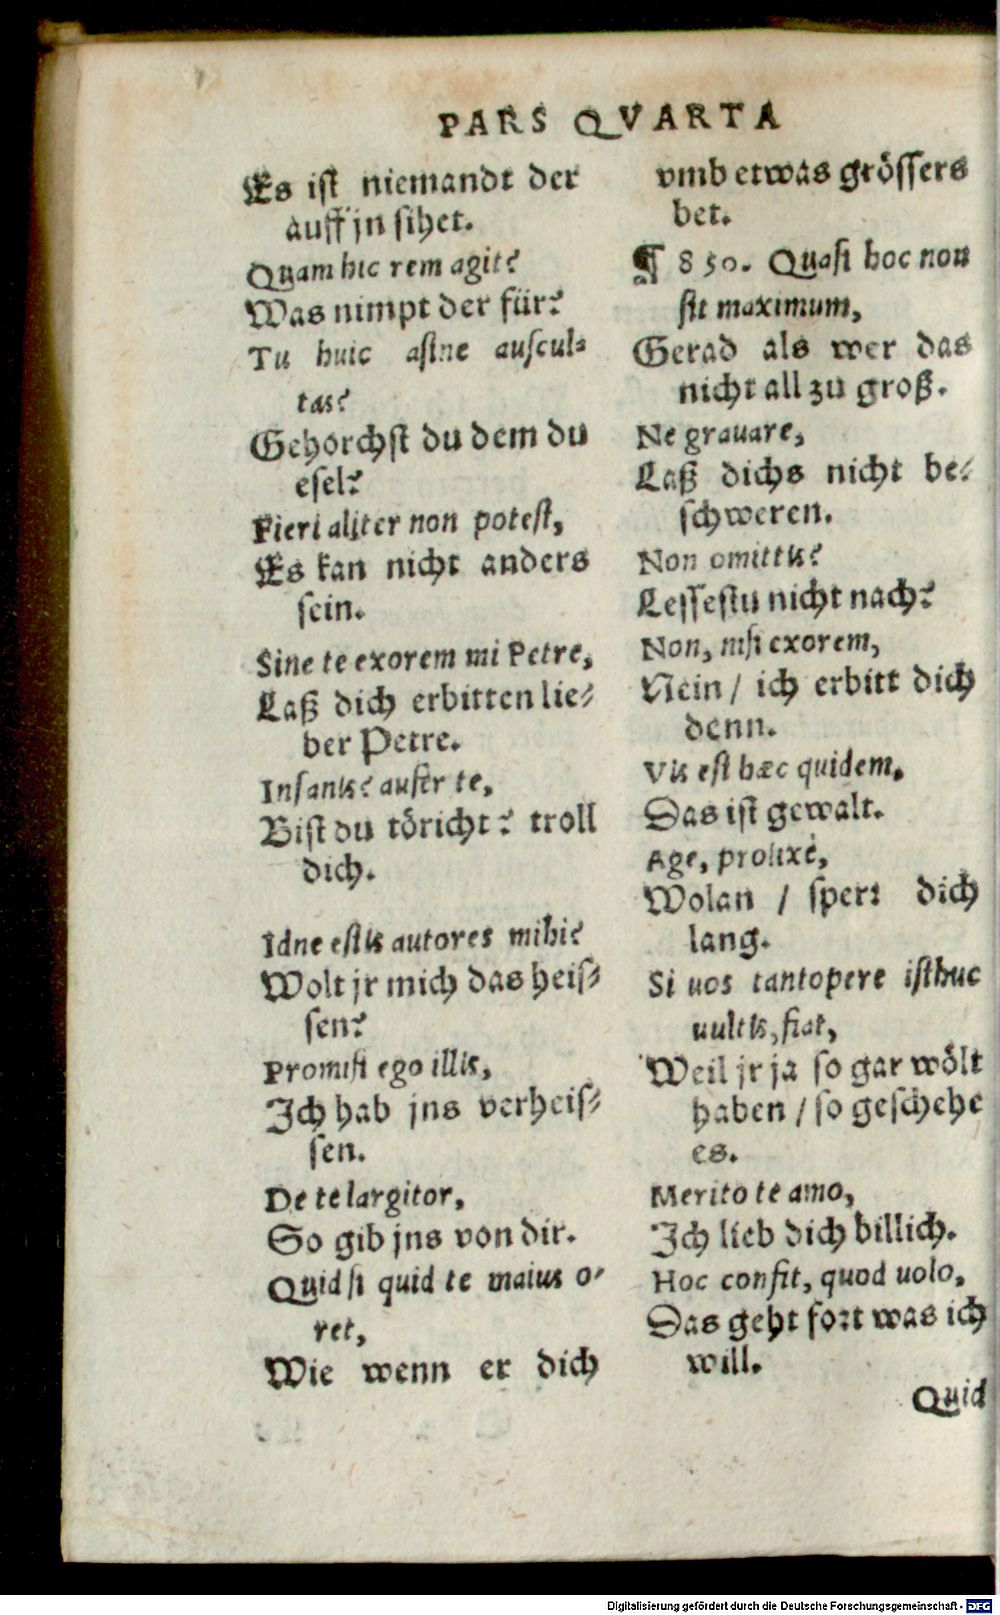 PARS QVARTA
Es ist niemandt der
auff jn sihet.
Quam hic rem agit?
Was nimpt der für?
Tu huic asine auscul⸗
tas?
Gehorchst du dem du
esel?
Fieri aliter non potest,
Es kan nicht anders
sein.
Sine te exorem mi Petre,
Laß dich erbitten lie⸗
ber Petre.
Insanis? aufer te,
Bist du töricht? troll
dich.
Idne estis autores mihi?
Wolt jr mich das heis⸗
sen?
Promisi ego illis,
Ich hab jns verheis⸗
sen.
De te largitor,
So gib jns von dir.
Quid si quid te maius o⸗
ret,
Wie wenn er dich
vmb etwas grössers
bet.
¶ 850. Quasi hoc non
sit maximum,
Gerad als wer das
nicht all zu groß.
Ne grauare,
Laß dichs nicht be⸗
schweren.
Non omittis?
Lessestu nicht nach?
Non, nisi exorem,
Nein / ich erbitt dich
denn.
Vis est hæc quidem.
Das ist gewalt.
Age, prolixè,
Wolan / sperr dich
lang.
Si uos tantopere isthuc
uultis, fiat,
Weil jr ja so gar wölt
haben / so geschehe
es.
Merito te amo,
Ich lieb dich billich.
Hoc confit, quod uolo.
Das geht fort was ich
will.
Quid
Digitalisierung gefördert durch die Deutsche Forschungsgemeinschaft - DFG